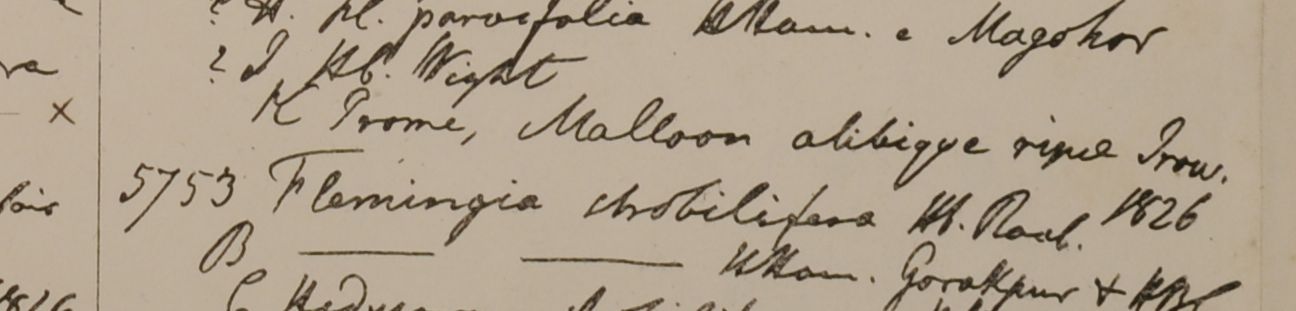 ? H. Fl. parvifolia HHam. e Magohor
ra ? I Hb. Wight
x K Prome, Malloon alibigqe ripæ Irrw.
5753 Flemingia strobilifera Hb. Roxb. 1826
B ——— ——— HHam. Gorakpur +